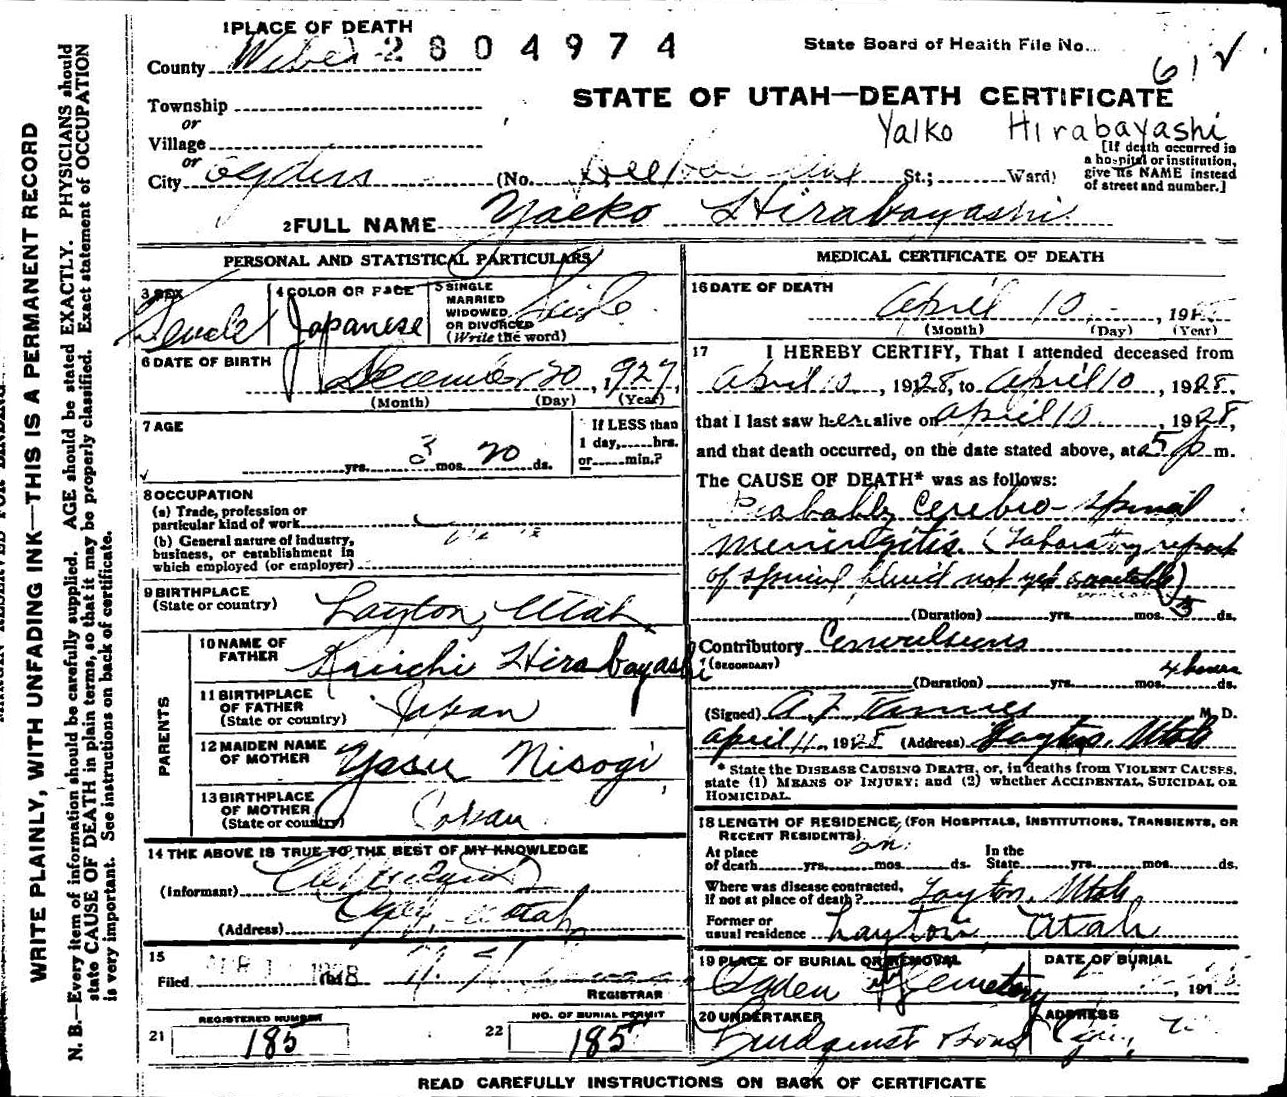 WRITE PLAINLY, WITH UNFADING INK—THIS IS A PERMANENT RECORD
N. B.—Every item of information should be carefully supplied. AGE should be stated EXACTLY. PHYSICIANS should
state CAUSE OF DEATH in plain terms, so that it may be properly classified. Exact statement of OCCUPATION
is very important. See instructions on back of certificate.
1 PLACE OF DEATH
2804974
State Board of Health File No.
61
County Weber
STATE OF UTAH—DEATH CERTIFICATE
Township
or
Yaiko Hirabayashi
Village
or
[If death occurred in
a hospital or institution,
give its NAME instead
of street and number.]
City Ogden (No. Dee St.; Ward)
2 FULL NAME Yaeko Hirabayashi
PERSONAL AND STATISTICAL PARTICULARS
3 SEX
Female
4 COLOR OR RACE
Japanese
5 SINGLE
MARRIED
WIDOWED
OR DIVORCED
(Write the word)
Single
6 DATE OF BIRTH
December 20, 1927,
(Month) (Day) (Year)
7 AGE
yrs. 3 mos. 20 ds.
If LESS than
1 day, hrs.
or min.?
8 OCCUPATION
(a) Trade, profession or
particular kind of work
(b) General nature of industry,
business, or establishment in
which employed (or employer)
9 BIRTHPLACE
(State or country)
Layton, Utah
PARENTS
10 NAME OF
FATHER
Hirabayashi
11 BIRTHPLACE
OF FATHER
(State or country)
Japan
12 MAIDEN NAME
OF MOTHER
Yasu Nisogi
13 BIRTHPLACE
OF MOTHER
(State or country)
Japan
14 THE ABOVE IS TRUE TO THE BEST OF MY KNOWLEDGE
(Informant)
(Address) Utah
15
Filed
REGISTRAR
21
REGISTERED NUMBER
185
22
NO. OF BURIAL PERMIT
185
MEDICAL CERTIFICATE OF DEATH
16 DATE OF DEATH
April 10, 191
(Month) (Day) (Year)
17 I HEREBY CERTIFY, That I attended deceased from
April 10, 1928, to April 10, 1928,
that I last saw her alive on April 10, 1928,
and that death occurred, on the date stated above, at 5 p m.
The CAUSE OF DEATH* was as follows:
Probably Cerebro-Spinal
meningitis. (Laboratory report
of spinal fluid not yet available)
(Duration) yrs. mos. 5 ds.
Contributory Convulsions
(SECONDARY)
4 hours
(Duration) yrs. mos. ds.
(Signed) M. D.
April 11, 1928 (Address) Layton, Utah
* State the DISEASE CAUSING DEATH, or, in deaths from VIOLENT CAUSES,
state (1) MEANS OF INJURY; and (2) whether ACCIDENTAL, SUICIDAL OR
HOMICIDAL.
18 LENGTH OF RESIDENCE (FOR HOSPITALS, INSTITUTIONS, TRANSIENTS, OR
RECENT RESIDENTS)
At place
of death yrs. mos. ds.
In the
State yrs. mos. ds.
Where was disease contracted,
if not at place of death? Layton, Utah
Former or
usual residence Layton, Utah
19 PLACE OF BURIAL OR REMOVAL
Ogden Cemetery
DATE OF BURIAL
191
20 UNDERTAKER
Lindquist Sons
ADDRESS
READ CAREFULLY INSTRUCTIONS ON BACK OF CERTIFICATE